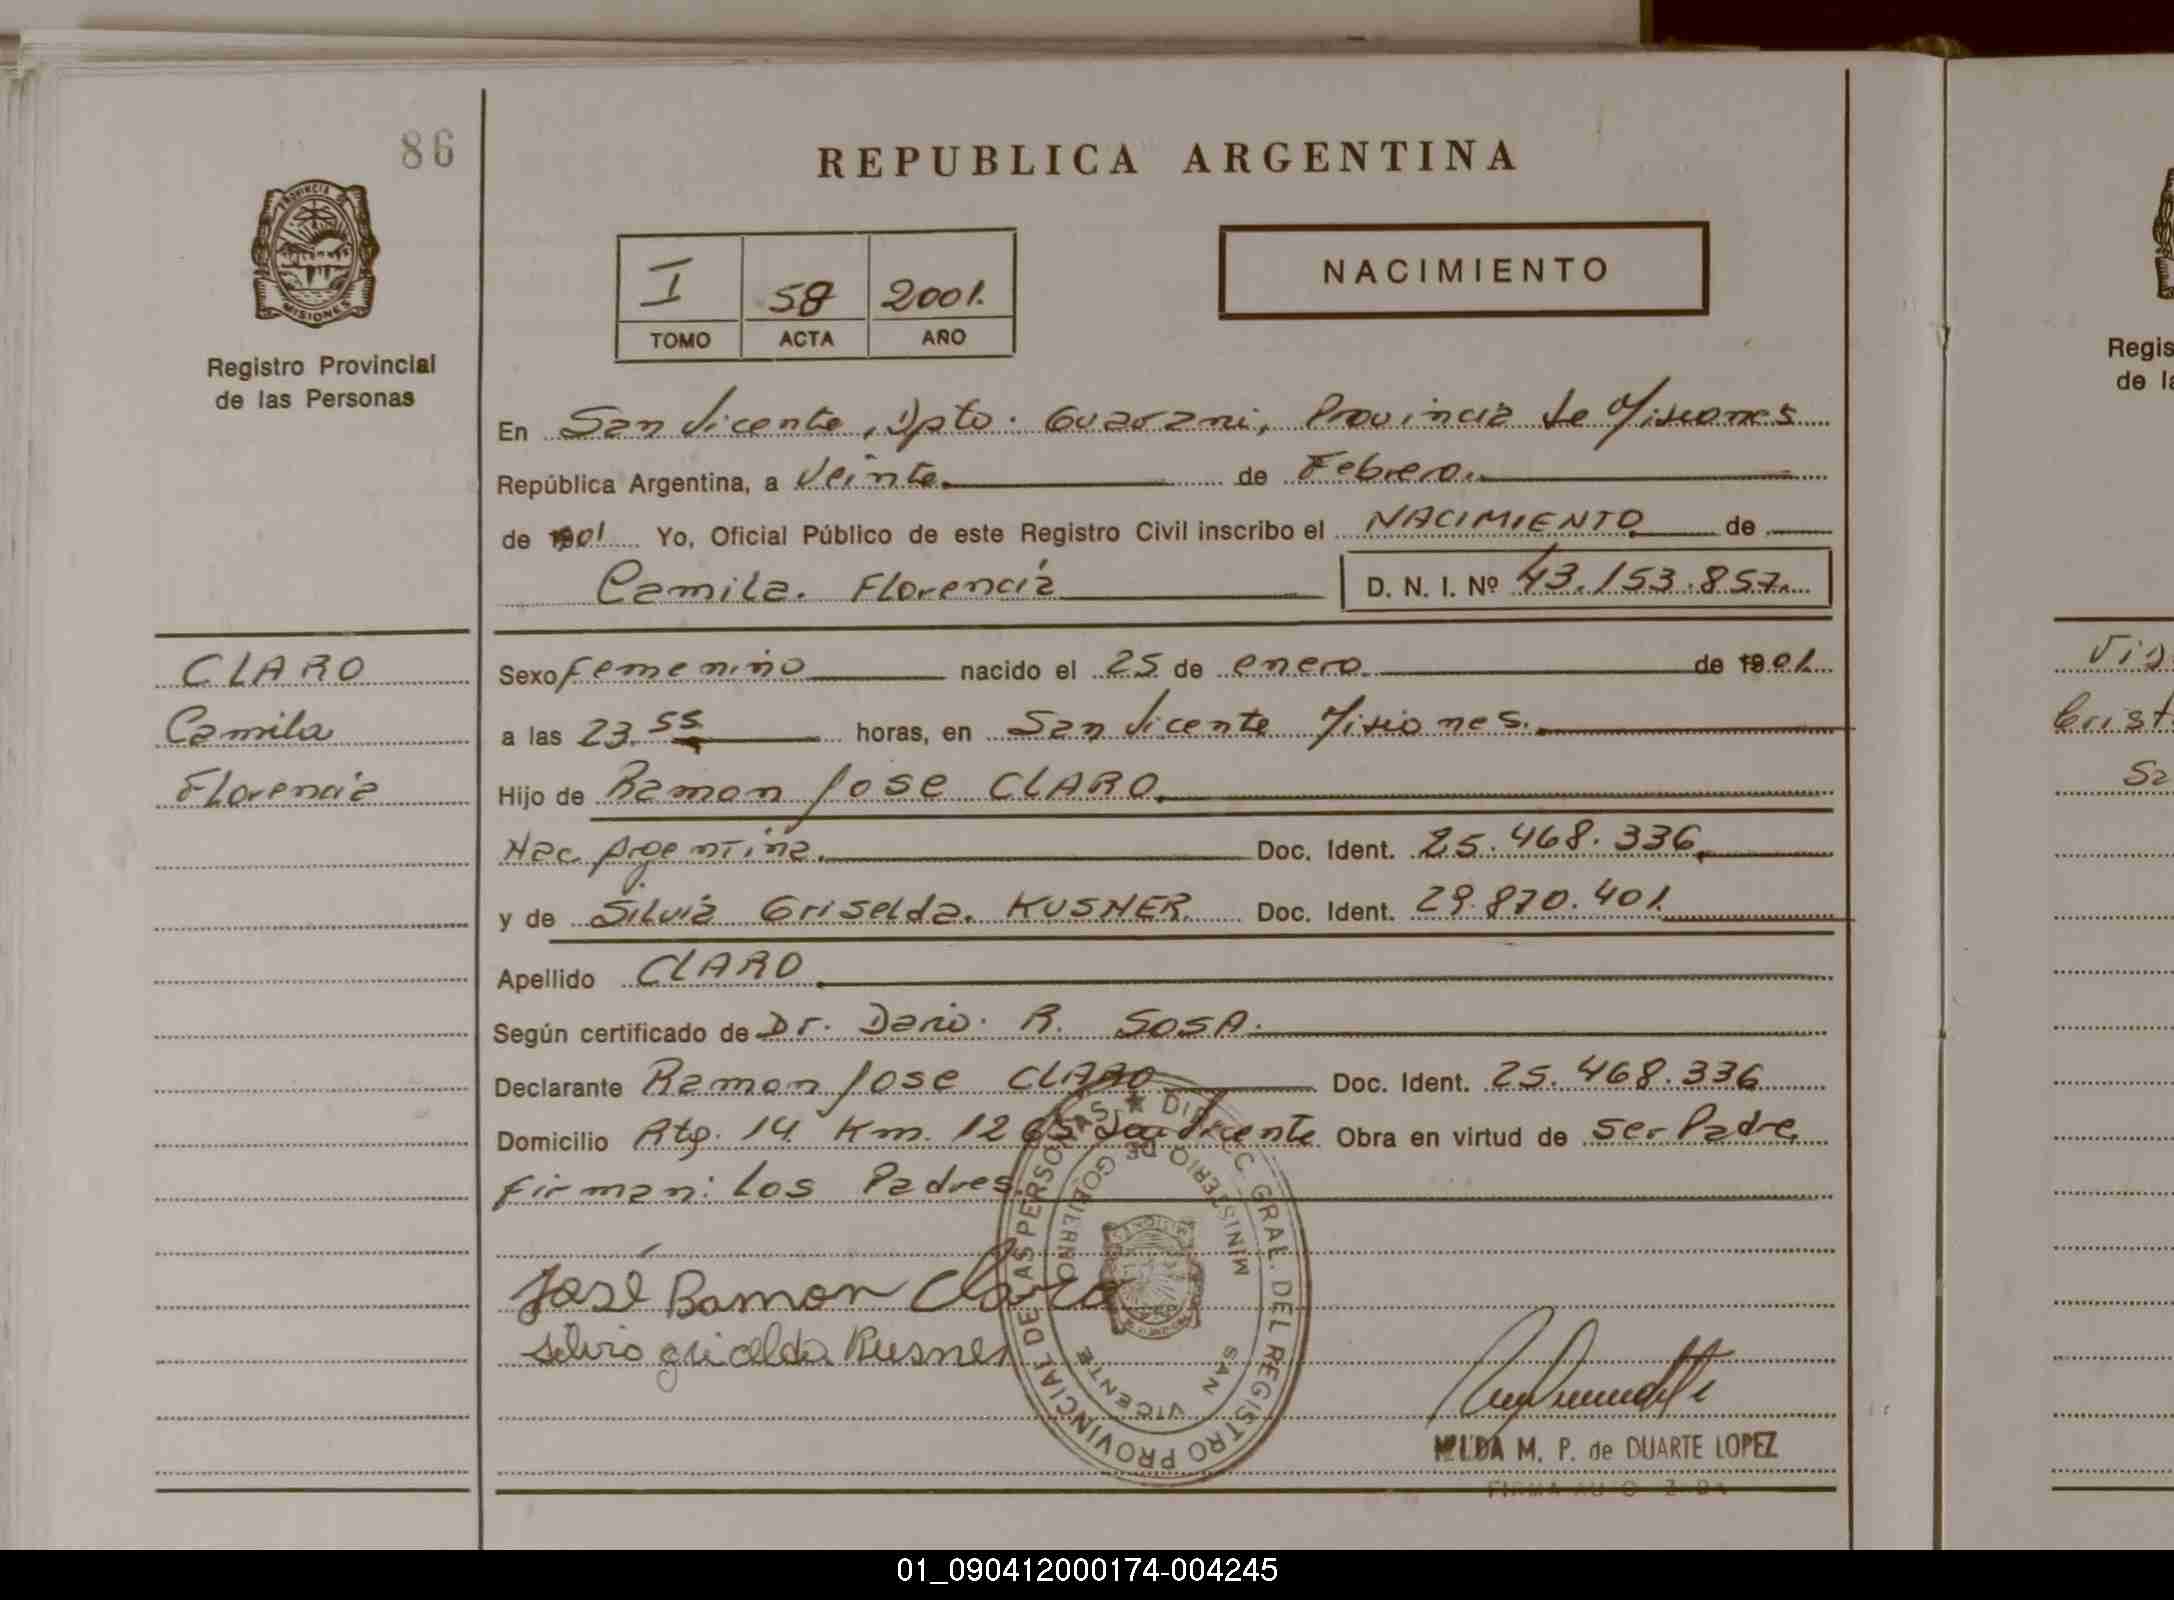 86
REPUBLICA ARGENTINA
PROVINCIA DE
MISIONES
Registro Provincial
de las Personas
I 58 2001.
TOMO ACTA AÑO
NACIMIENTO
En San Vicente, Dpto. Guarani, Provincia de Misiones
República Argentina, a Veinte de Febrero.
de 1901 Yo, Oficial Público de este Registro Civil inscribo el NACIMIENTO de
Camila. Florencia D. N. I. Nº 43.153.857.
CLARO
Camila
Florencia
Sexo femenino nacido el 25 de enero de 1901.
a las 23.55 horas, en San Vicente Misiones.
Hijo de Ramon Jose CLARO.
Nac Argentina. Doc. Ident. 25.468.336.
y de Silvia Griselda. KUSNER. Doc. Ident. 29.870.401.
Apellido CLARO
Según certificado de Dr. Dario. R. SOSA.
Declarante Ramon Jose CLARO Doc. Ident. 25.468.336
Domicilio Rta. 14 Km. 1265 San Vicente Obra en virtud de ser Padre
firman: los Padres.
José Ramon Claro
Silvia griselda Kusner
DIRECC. GRAL. DEL REGISTRO PROVINCIAL DE LAS PERSONAS
MINISTERIO DE GOBIERNO
SAN VICENTE
HILDA M. P. de DUARTE LOPEZ
Regis
de la
Crist
01_090412000174-004245